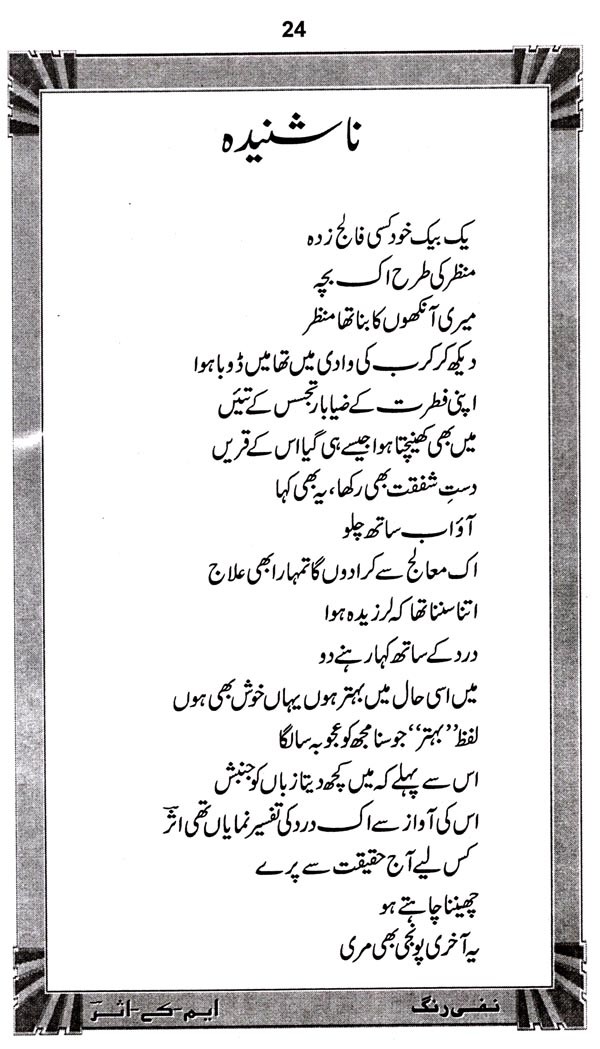 24
ناشنیدہ
یک بیک خود کسی فالج زدہ
منظر کی طرح اک بچہ
میری آنکھوں کا بنا تھا منظر
دیکھ کر کرب کی وادی میں تھا میں ڈوبا ہوا
اپنی فطرت کے ضیا بار تجسس کے تئیں
میں بھی کھنیچتا ہوا جیسے ہی گیا اس کے قریں
دستِ شفقت بھی رکھا، یہ بھی کہا
آؤ اب ساتھ چلو
اک معالج سے کرا دوں گا تمہارا بھی علاج
اتنا سننا تھا کہ لرزیدہ ہوا
درد کے ساتھ کہا رہنے دو
میں اسی حال میں بہتر ہوں یہاں خوش بھی ہوں
لفظ ’’بہتر‘‘ جو سنا مجھ کو عجوبہ سا لگا
اس سے پہلے کہ میں کچھ دیتا زباں کو جنبش
اس کی آواز سے اک درد کی تفسیر نمایاں تھی اثرؔ
کس لیے آج حقیقت سے پرے
چھیننا چاہتے ہو
یہ آخری پونجی بھی مری
نفی رنگ
ایم-کے-اثرؔ